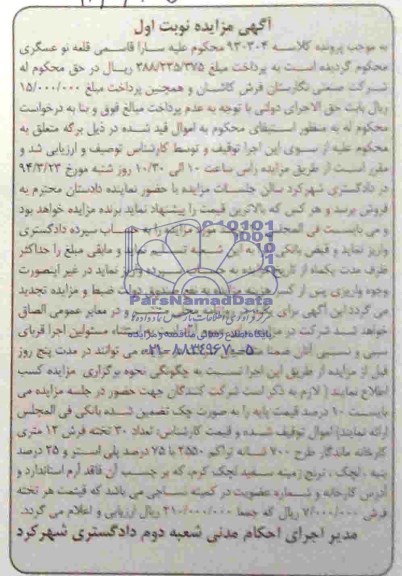 آگهی مزایده نوبت اول
به موجب پرونده کلاسه ۹۳۰۳۰۴ محکوم علیه سارا قاسمی قلعه نو عسگری
محکوم گردیده است به پرداخت مبلغ ۳۸۸/۲۳۵/۳۷۵ ریال در حق محکوم له
شرکت صنعتی نگارستان فرش کاشان و همچنین پرداخت مبلغ ۱۵/۰۰۰/۰۰۰
ریال بابت حق الاجرای دولتی با توجه به عدم پرداخت مبالغ فوق و بنا به درخواست
محکوم له به منظور استیفای محکوم به اموال قید شده در ذیل برگه متعلق به
محکوم علیه از سوی این اجرا توقیف و توسط کارشناس توصیف و ارزیابی شد و
مقرر است از طریق مزایده راس ساعت ۱۰ الی ۱۰/۳۰ روز شنبه مورخ ۹۴/۳/۲۳
در دادگستری شهرکرد سالن جلسات مزایده با حضور نماینده دادستان محترم به
فروش برسد و هر کس که بالاترین قیمت را پیشنهاد نماید برنده مزایده خواهد بود
و می بایست فی المجلس مزایده را به حساب سپرده دادگستری
واریز نماید و قبض بانکی را به این شعبه تسلیم نماید و مابقی مبلغ را حداکثر
ظرف مدت یکماه از تاریخ مزایده به سپرده واریز نماید در غیر اینصورت
وجوه واریزی پس از کسر هزینه مزایده به نفع صندوق دولت ضبط و مزایده تجدید
می گردد این آگهی برای و در معابر عمومی الصاق
خواهد شد شرکت در مسئولین اجرا قربای
سببی و نسبی آنان ضمنا می توانند در مدت پنج روز
قبل از مزایده از طریق این اجرا نسبت به چگونگی نحوه برگزاری مزایده کسب
اطلاع نمایند ( لازم به ذکر است شرکت کنندگان جهت حضور در جلسه مزایده می
بایست ۱۰ درصد قیمت پایه را به صورت چک تضمین شده بانکی فی المجلس
ارائه نمایند) اموال توقیف شده و قیمت کارشناسی: تعداد ۳۰ تخته فرش ۱۲ متری
کارخانه ماندگار طرح ۷۰۰ شانه تراکم ۲۵۵۰ با ۷۵ درصد پلی استر و ۲۵ درصد
پنبه ، لچک ، ترنج زمینه سفید لچک کرم، که بر چسب آن فاقد آرم استاندارد و
آدرس کارخانه و شماره عضویت در کمیته نساجی می باشد که قیمت هر تخته
فرش ۷/۰۰۰/۰۰۰ ریال که جمعا ۲۱۰/۰۰۰/۰۰۰ ریال ارزیابی و اعلام می گردد.
مدیر اجرای احکام مدنی شعبه دوم دادگستری شهرکرد
ParsNamadData
پایگاه اطلاع رسانی مناقصه و مزایده
۰۲۱-۸۸۳۴۹۶۷۰-۵